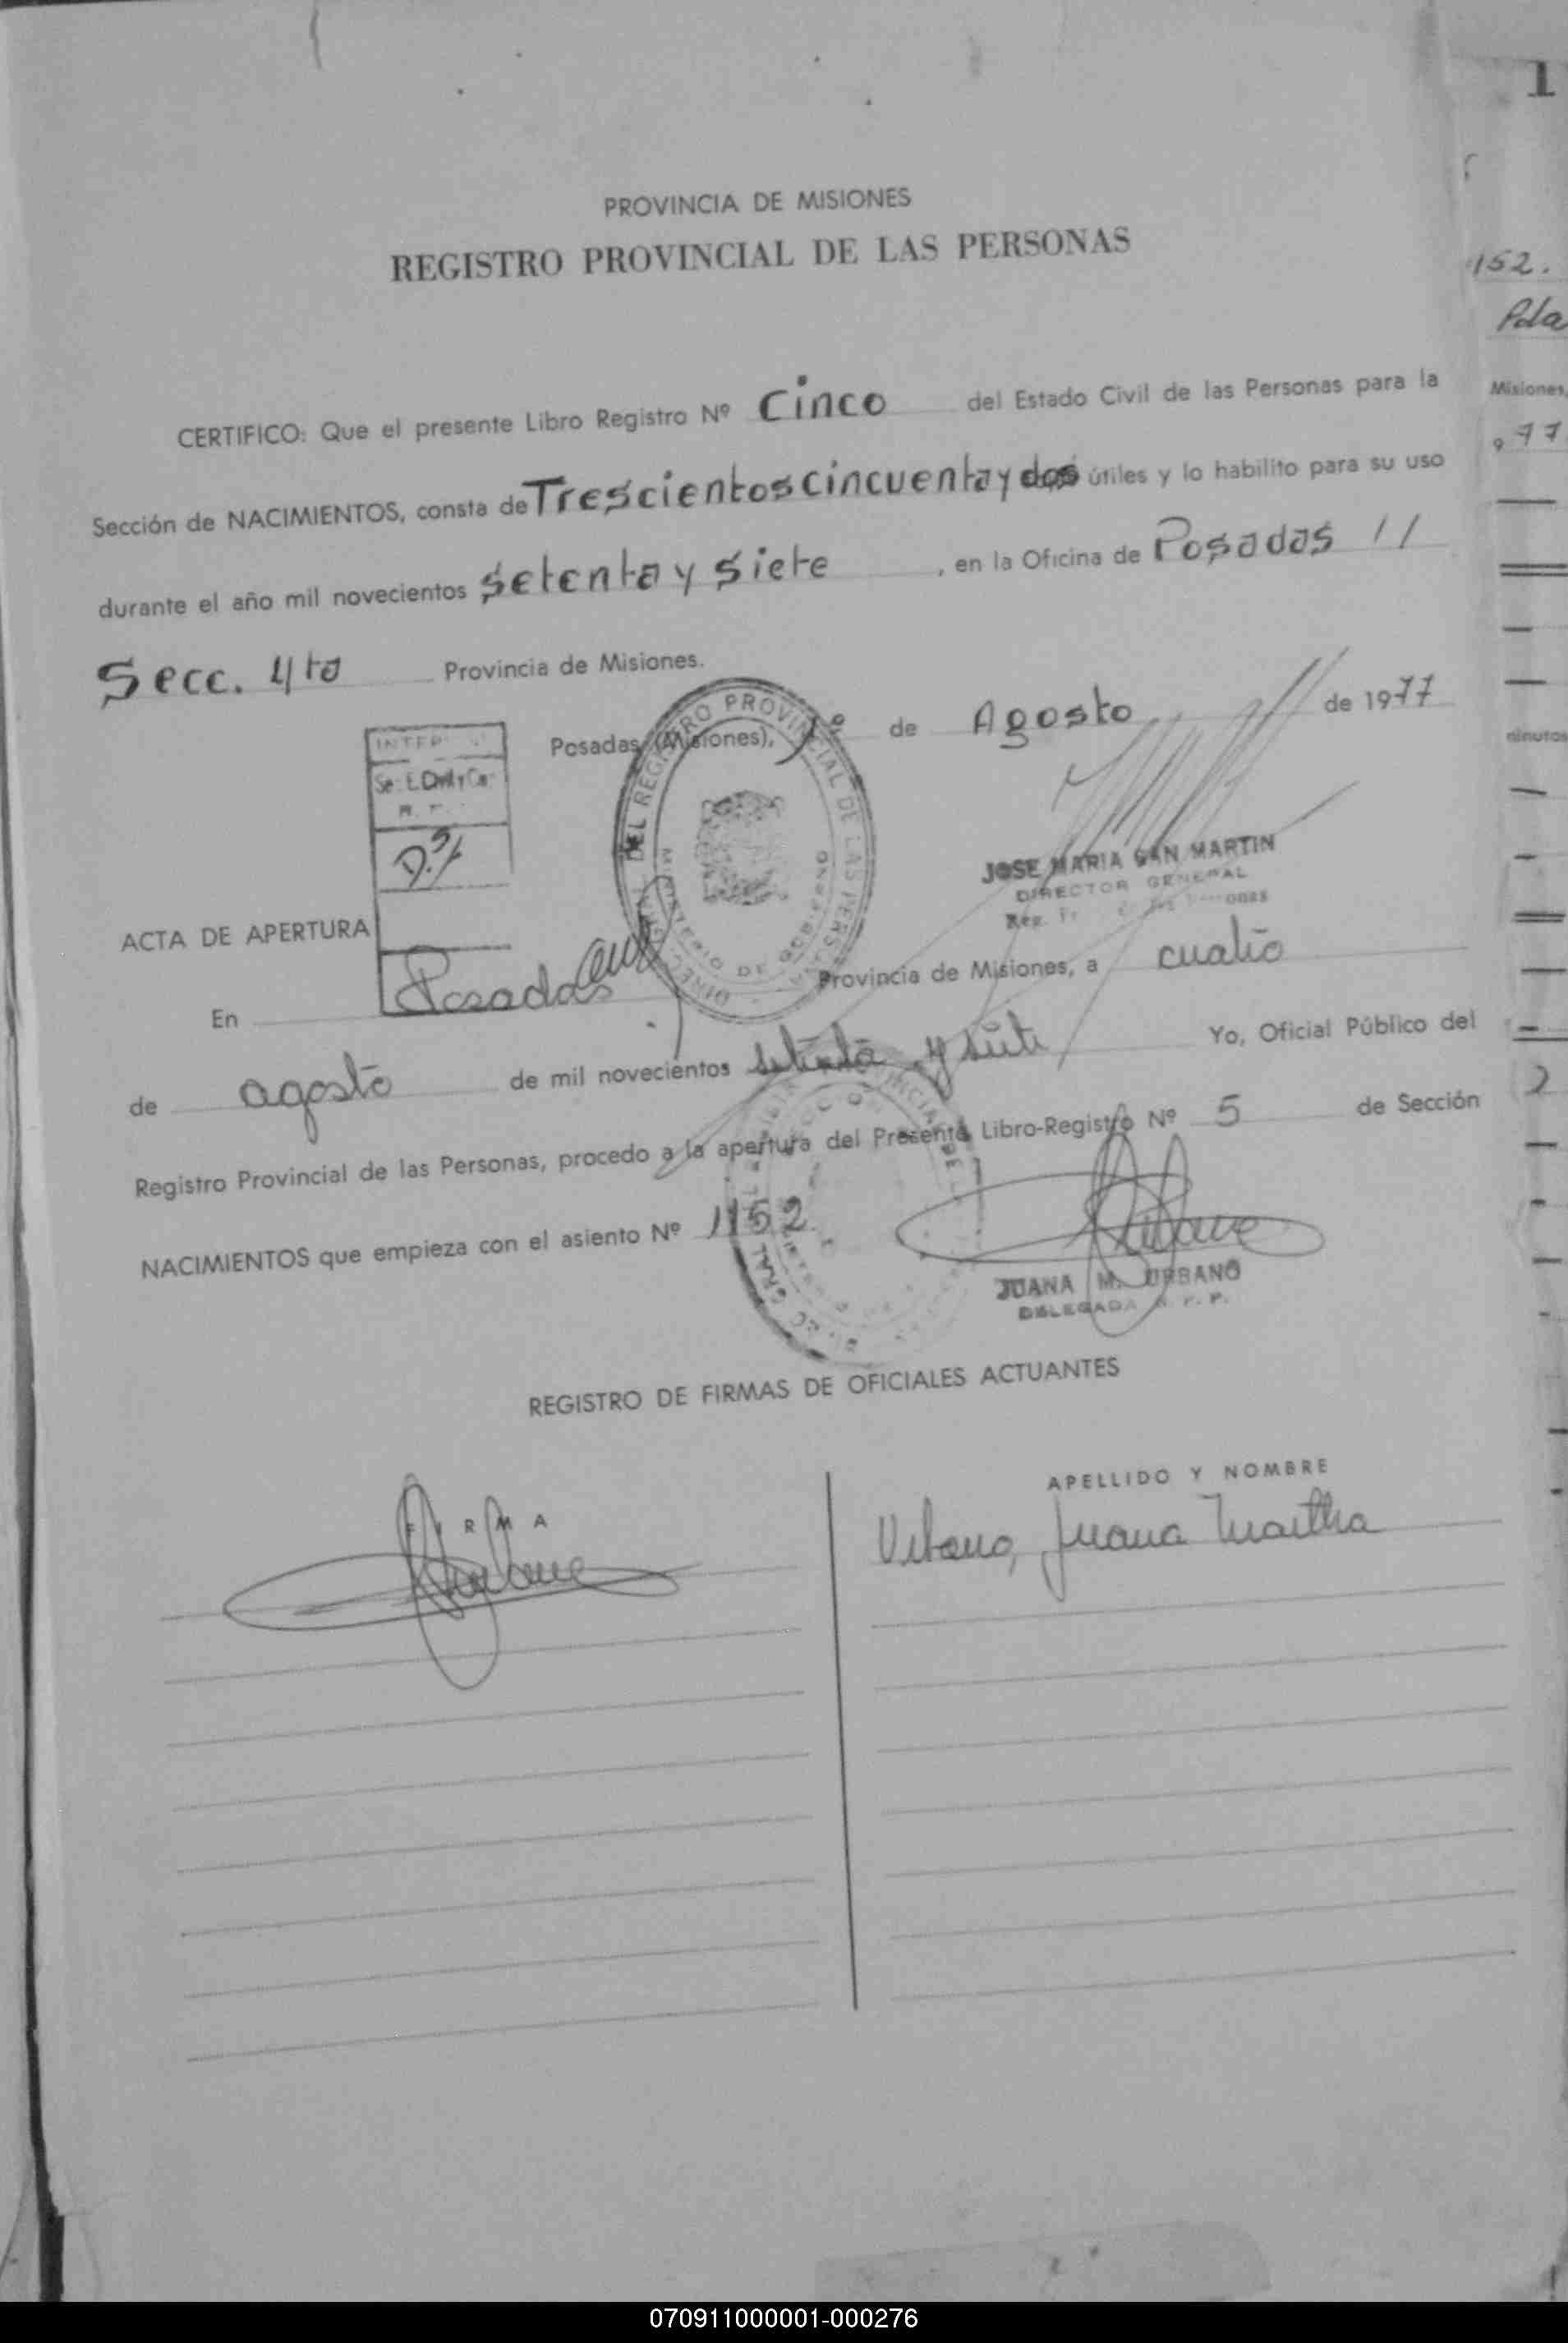 1
PROVINCIA DE MISIONES
REGISTRO PROVINCIAL DE LAS PERSONAS
152.
Pda
CERTIFICO: Que el presente Libro Registro Nº Cinco del Estado Civil de las Personas para la
Misiones,
977
Sección de NACIMIENTOS, consta de Trescientos cincuenta y dos útiles y lo habilito para su uso
durante el año mil novecientos setenta y siete, en la Oficina de Posadas //
Secc. 4ta Provincia de Misiones.
Posadas (Misiones), 1º de Agosto de 1977
minutos
DEL REGISTRO PROVINCIAL DE LAS PERSONAS
MINISTERIO DE GOBIERNO
JOSE MARIA SAN MARTIN
DIRECTOR GENERAL
ACTA DE APERTURA
En Posadas Provincia de Misiones, a cuatro
de agosto de mil novecientos setenta y siete Yo, Oficial Público del
2
Registro Provincial de las Personas, procedo a la apertura del Presente Libro-Registro Nº 5 de Sección
NACIMIENTOS que empieza con el asiento Nº 1152
JUANA M. URBANO
DELEGADA R. P. P.
REGISTRO DE FIRMAS DE OFICIALES ACTUANTES
FIRMA
APELLIDO Y NOMBRE
Urbano, Juana Martha
070911000001-000276